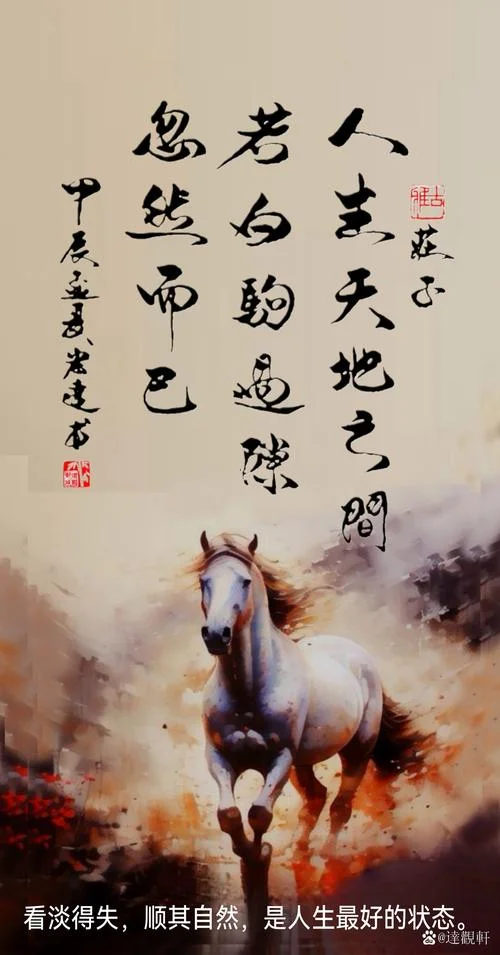 莊子
人生天地之間
若白駒過隙
忽然而已
甲辰孟夏宏達书
古雅
看淡得失，顺其自然，是人生最好的状态。
@達觀軒